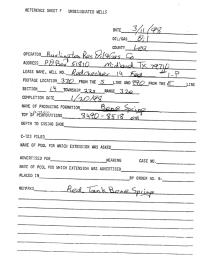 REFERENCE SHEET F UNDESIGNATED WELLS
DATE 3/11/98
OIL/GAS Oil
COUNTY Lea
OPERATOR Burlington Res Oil & Gas Co
ADDRESS P.O. Box 51810 Midland TX 79710
LEASE NAME, WELL NO. Redchecker 14 Fed #1-P
FOOTAGE LOCATION 330 FROM THE S LINE AND 990 FROM THE E LINE
SECTION 14 TOWNSHIP 22S RANGE 32E
COMPLETION DATE 1/20/98
NAME OF PRODUCING FORMATION Bone Spring
TOP OF PERFORATIONS 8490 - 8518
DEPTH TO CASING SHOE
C-123 FILED
NAME OF POOL FOR WHICH EXTENSION WAS ASKED
ADVERTISED FOR HEARING CASE NO.
NAME OF POOL FOR WHICH EXTENSION WAS ADVERTISED
PLACED IN BY ORDER NO. R-
REMARKS Red Tank Bone Spring